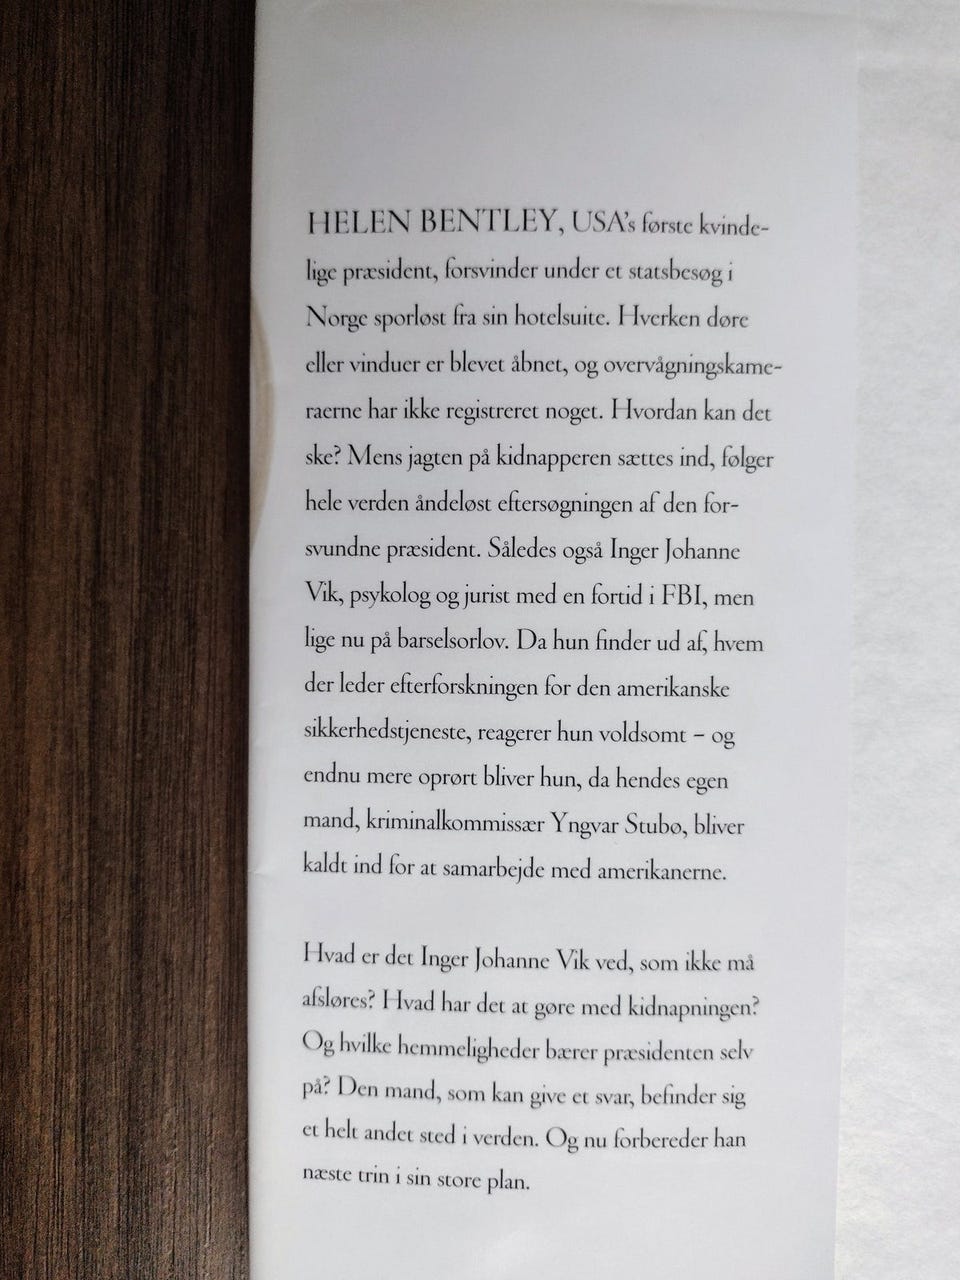 HELEN BENTLEY, USA's første kvinde-
lige præsident, forsvinder under et statsbesøg i
Norge sporløst fra sin hotelsuite. Hverken døre
eller vinduer er blevet åbnet, og overvågningskame-
raerne har ikke registreret noget. Hvordan kan det
ske? Mens jagten på kidnapperen sættes ind, følger
hele verden åndeløst eftersøgningen af den for-
svundne præsident. Således også Inger Johanne
Vik, psykolog og jurist med en fortid i FBI, men
lige nu på barselsorlov. Da hun finder ud af, hvem
der leder efterforskningen for den amerikanske
sikkerhedstjeneste, reagerer hun voldsomt – og
endnu mere oprørt bliver hun, da hendes egen
mand, kriminalkommissær Yngvar Stubø, bliver
kaldt ind for at samarbejde med amerikanerne.
Hvad er det Inger Johanne Vik ved, som ikke må
afsløres? Hvad har det at gøre med kidnapningen?
Og hvilke hemmeligheder bærer præsidenten selv
på? Den mand, som kan give et svar, befinder sig
et helt andet sted i verden. Og nu forbereder han
næste trin i sin store plan.